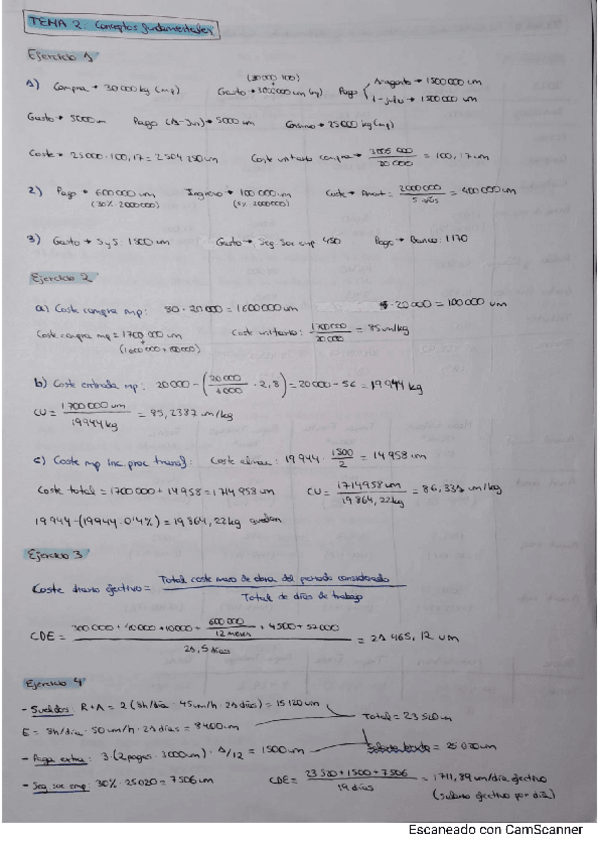 TEMA 2: Conceptos fundamentales
Ejercicio 1
1) Compra → 30000 kg (mp) Gasto → 3000000 um (mp) (30000·100) Pago { Margarita → 1500000 um
1-julio → 1500000 um
Gasto → 5000 um Pago (1-Jun) → 5000 um Consumo → 25000 kg (mp)
Coste → 25000 · 100,17 = 2504250 um Coste unitario compra → 3005000 / 30000 = 100,17 um
2) Pago → 600000 um Ingreso → 100000 um Coste → Amort: 2000000 / 5 años = 400000 um
(30% 2000000) (5% 2000000)
3) Gasto → SyS: 1500 um Gasto → Seg. Soc emp 450 Pago → Banco: 1170
Ejercicio 2
a) Coste compra mp: 80 · 20000 = 1600000 um 5 · 20000 = 100000 um
Coste compra mp = 1700000 um Coste unitario: 1700000 / 20000 = 85 um/kg
(1600000 + 100000)
b) Coste entrada mp: 20000 - (20000 / 1000 · 2,8) = 20000 - 56 = 19944 kg
CU = 1700000 um / 19944 kg = 85,2387 um/kg
c) Coste mp inc. proc transf: Coste almac: 19944 · 1500 / 2 = 14958 um
Coste total = 1700000 + 14958 = 1714958 um CU = 1714958 um / 19864,22 kg = 86,331 um/kg
19944 - (19944 · 0'4%) = 19864,22 kg quedan
Ejercicio 3
Coste diario efectivo = Total coste mano de obra del periodo considerado / Total de días de trabajo
CDE = 300000 + 40000 + 10000 + 600000 / 12 meses + 4500 + 52000 / 21,5 días = 21465,12 um
Ejercicio 4
- Sueldos: R+A = 2 (8h/día · 45 um/h · 21 días) = 15120 um
Total = 23520 um
E = 8h/día · 50 um/h · 21 días = 8400 um
- Paga extra: 3 · (2 pagas · 3000 um) · 1/12 = 1500 um = 25020 um
- Seg. soc emp: 30% · 25020 = 7506 um CDE = 23520 + 1500 + 7506 / 19 días = 1711,89 um/día efectivo
(salario efectivo por día)
Escaneado con CamScanner